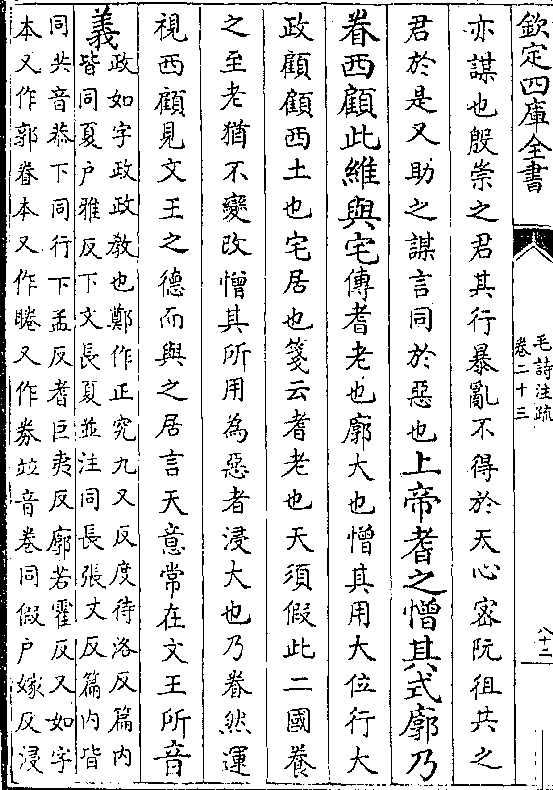 欽定四庫全書
毛詩注疏
卷二十三
八十二
亦謀也殷崇之君其行暴亂不得於天心密阮徂共之
君於是又助之謀言同於惡也上帝耆之憎其式廓乃
眷西顧此維與宅傳耆老也廓大也憎其用大位行大
政顧顧西土也宅居也箋云耆老也天須假此二國養
之至老猶不變改憎其所用為惡者浸大也乃眷然運
視西顧見文王之德而與之居言天意常在文王所音
義政如字政政教也鄭作正究九又反度待洛反篇内
皆同夏户雅反下文長夏並注同長張丈反篇内皆
同共音恭下同行下孟反耆巨夷反廓若霍反又如字
本又作郭眷本又作睠又作劵竝音卷同假户嫁反浸